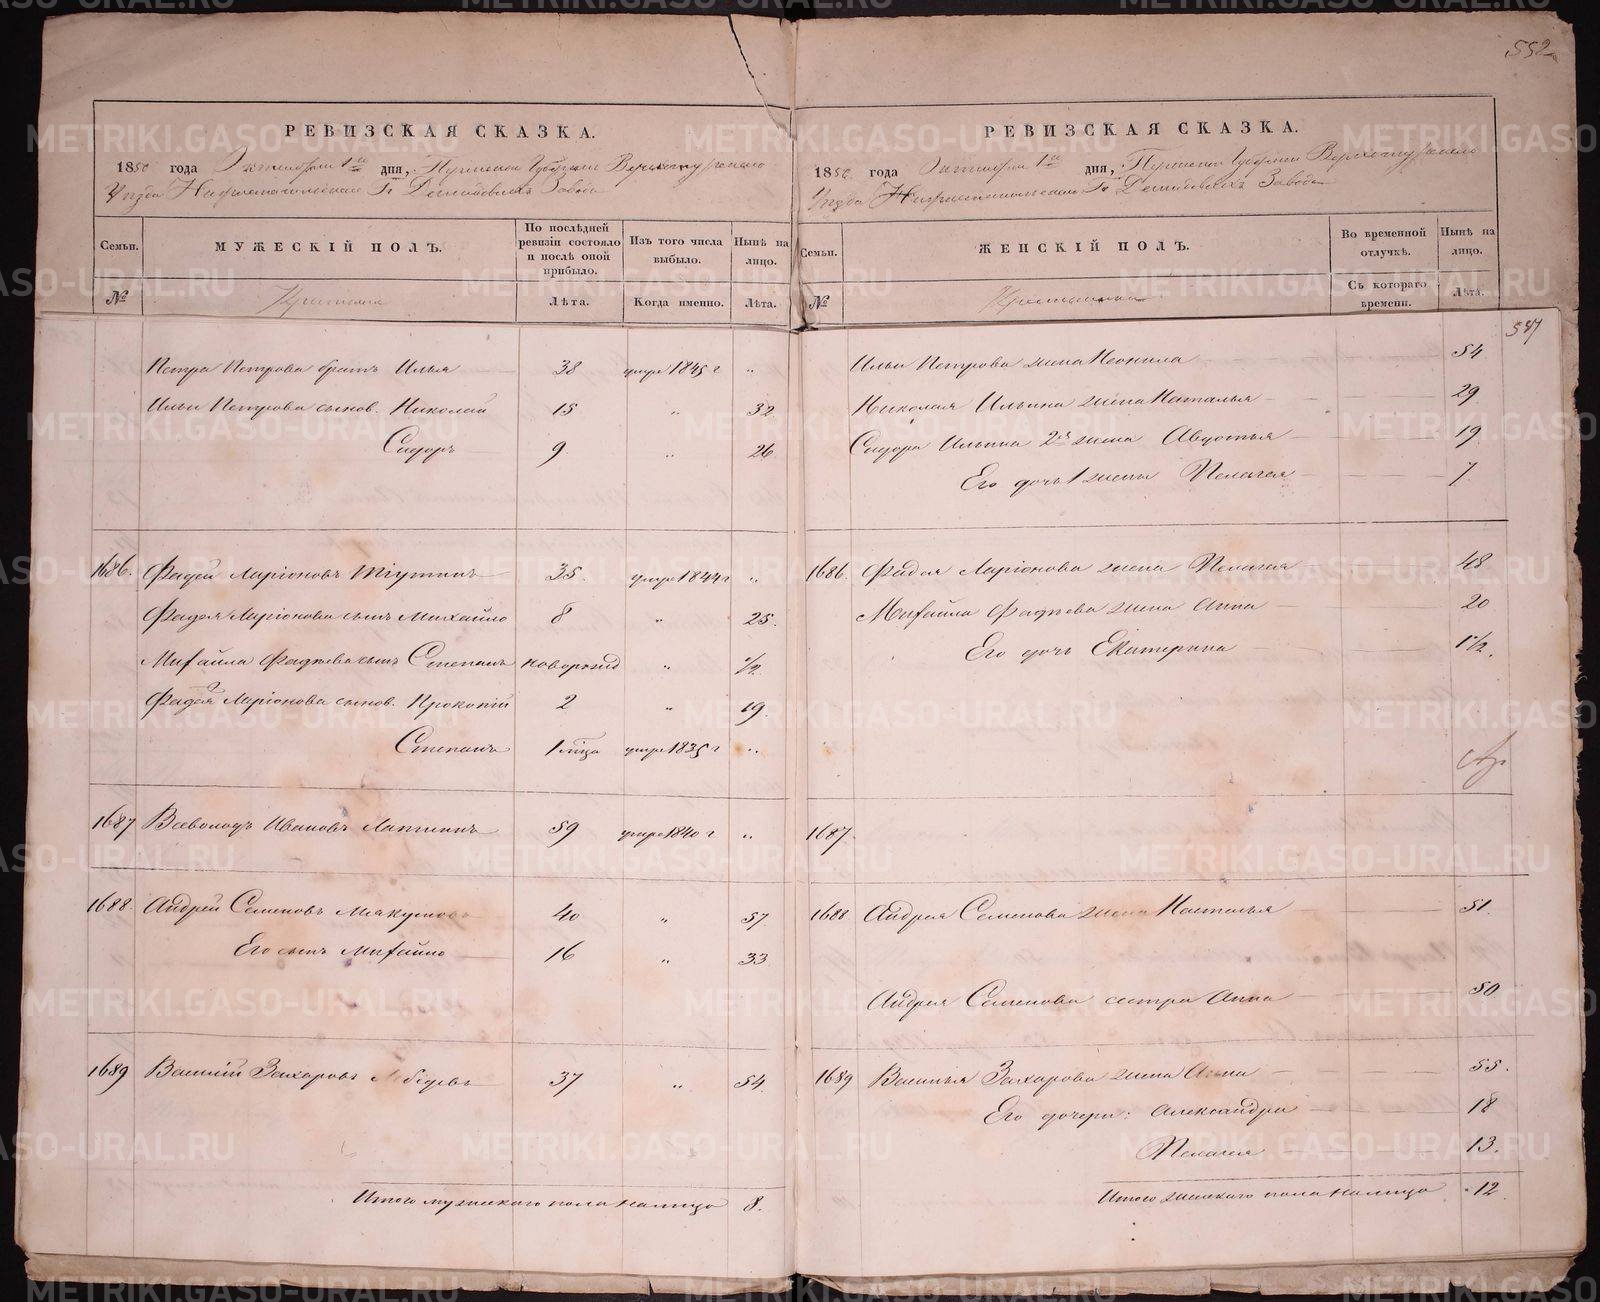 552
РЕВИЗСКАЯ СКАЗКА.
1850 года Октября 1го дня, Пермской Губернии Верхотурскаго
Уезда Нижнетагильскаго Гг Демидовыхъ Завода
Семьи. МУЖЕСКІЙ ПОЛЪ. По послѣдней ревизіи состояло и послѣ оной прибыло. Изъ того числа выбыло. Нынѣ на лицо.
№ Крестьяне Лѣта. Когда именно. Лѣта.
Петра Петрова братъ Илья 38 умре 1845 г "
Ильи Петрова сынов. Николай 15 " 32
Сидоръ 9 " 26
1686. Фадей Ларіоновъ 35. умре 1844 г "
Фадея Ларіонова сынъ Михайло 8 " 25.
Михайла Фадѣева сынъ Степанъ новорожд " 1/2
Фадея Ларіонова сынов. Прокопій 2 " 19.
Степанъ 1 мца умре 1835 г "
1687 Всеволодъ Ивановъ Лаптинъ 59 умре 1840 г "
1688. Андрей Семеновъ 40 " 57.
Его сынъ Михайло 16 " 33
1689 Василій Захаровъ 37 " 54.
Итого мужескаго пола налицо 8.
РЕВИЗСКАЯ СКАЗКА.
1850 года Октября 1го дня, Пермской Губерніи Верхотурскаго
Уезда Нижнетагильскаго Гг Демидовыхъ Завода
Семьи. ЖЕНСКІЙ ПОЛЪ. Во временной отлучкѣ. Нынѣ на лицо.
№ Крестьянки Съ котораго времени. Лѣта.
547
Ильи Петрова жена Неонила 54
Николая Ильина жена Наталья 29
Сидора Ильина 2я жена Авдотья 19
Его дочь 1 жены Пелагея 7
1686. Фадея Ларіонова жена Пелагея 48
Михайла Фадѣева жена Анна 20
Его дочь Екатерина 1 1/2.
1687.
1688 Андрея Семенова жена Наталья 51.
Андрея Семенова сестра Анна 50
1689 Василья Захарова жена Анна 55.
Его дочери: Александра 18
Пелагея 13.
Итого женскаго пола налицо 12
METRIKI.GASO-URAL.RU